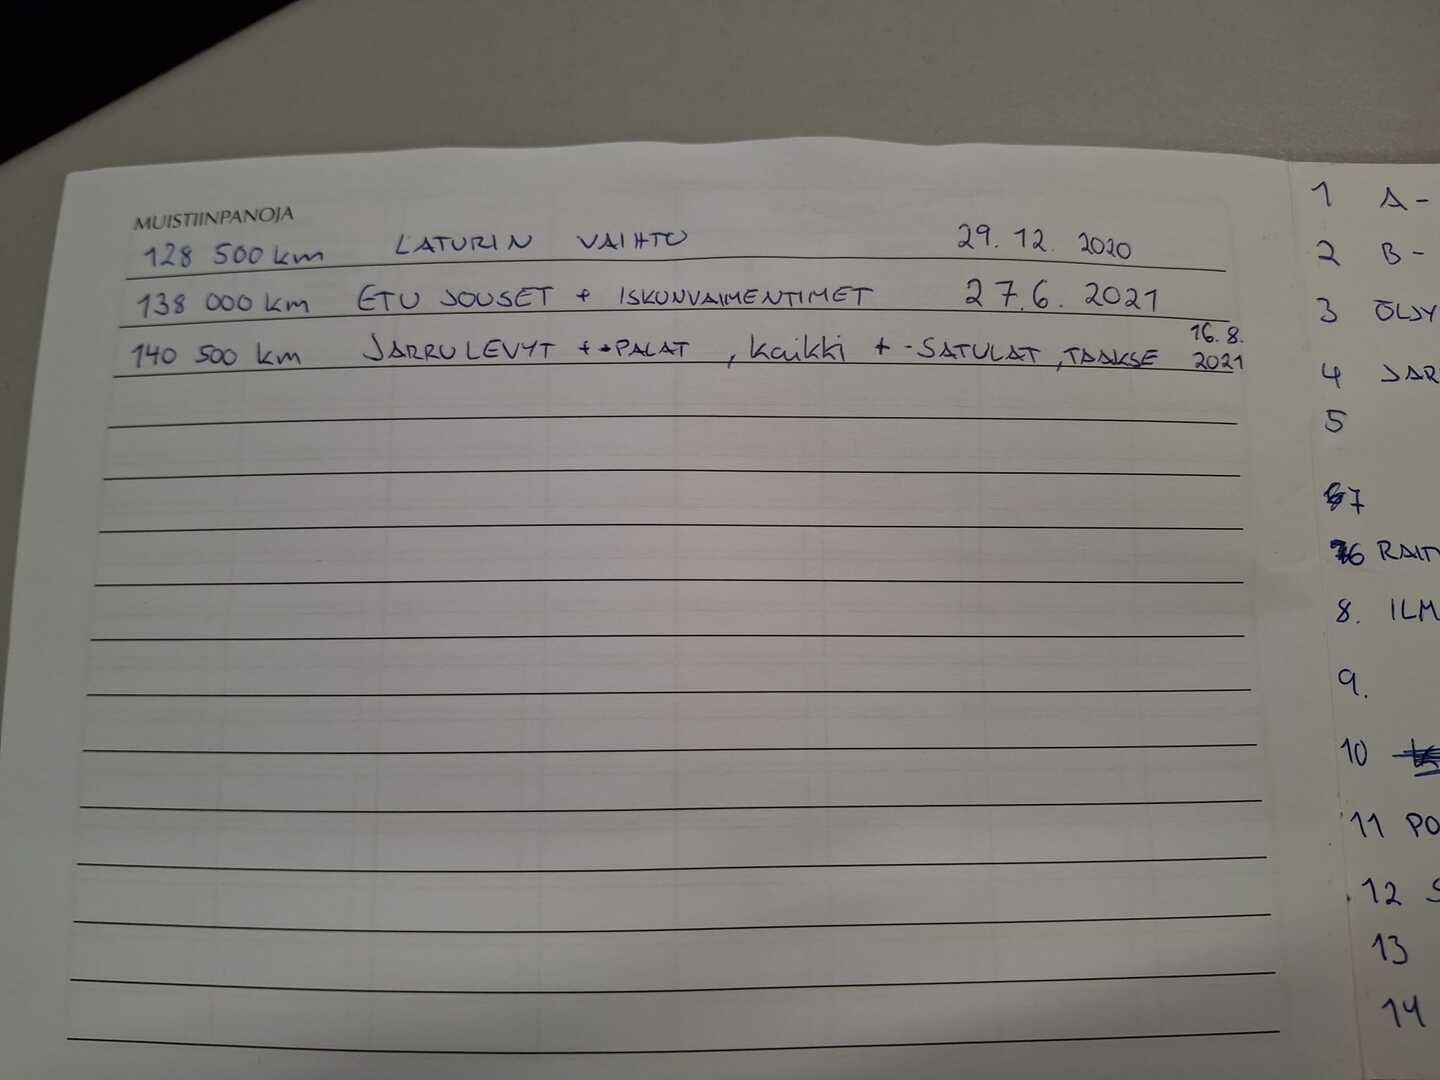 MUISTIINPANOJA
128 500 km LATURIN VAIHTO 29. 12. 2020
138 000 km ETU JOUSET + ISKUNVAIMENTIMET 27.6. 2021
140 500 km JARRULEVYT + -PALAT , kaikki + -SATULAT ,TAAKSE 16.8. 2021
1 A-
2 B-
3 ÖLJY
4 JAR
5
7
6 RAIT
8. ILM
9.
10
11 PO
12 S
13
14